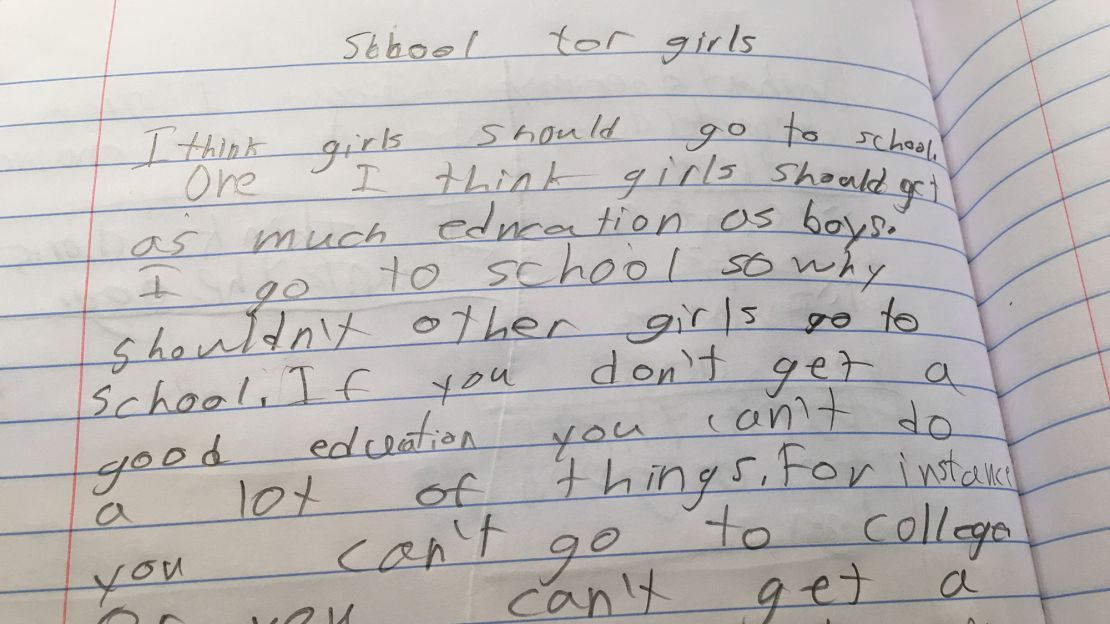 Sbhool for girls
I think girls should go to school.
One I think girls should get
as much education as boys.
I go to school so why
shouldn't other girls go to
school. If you don't get a
good edceation you can't do
a lot of things. For instance
you can't go to college
Or you can't get a